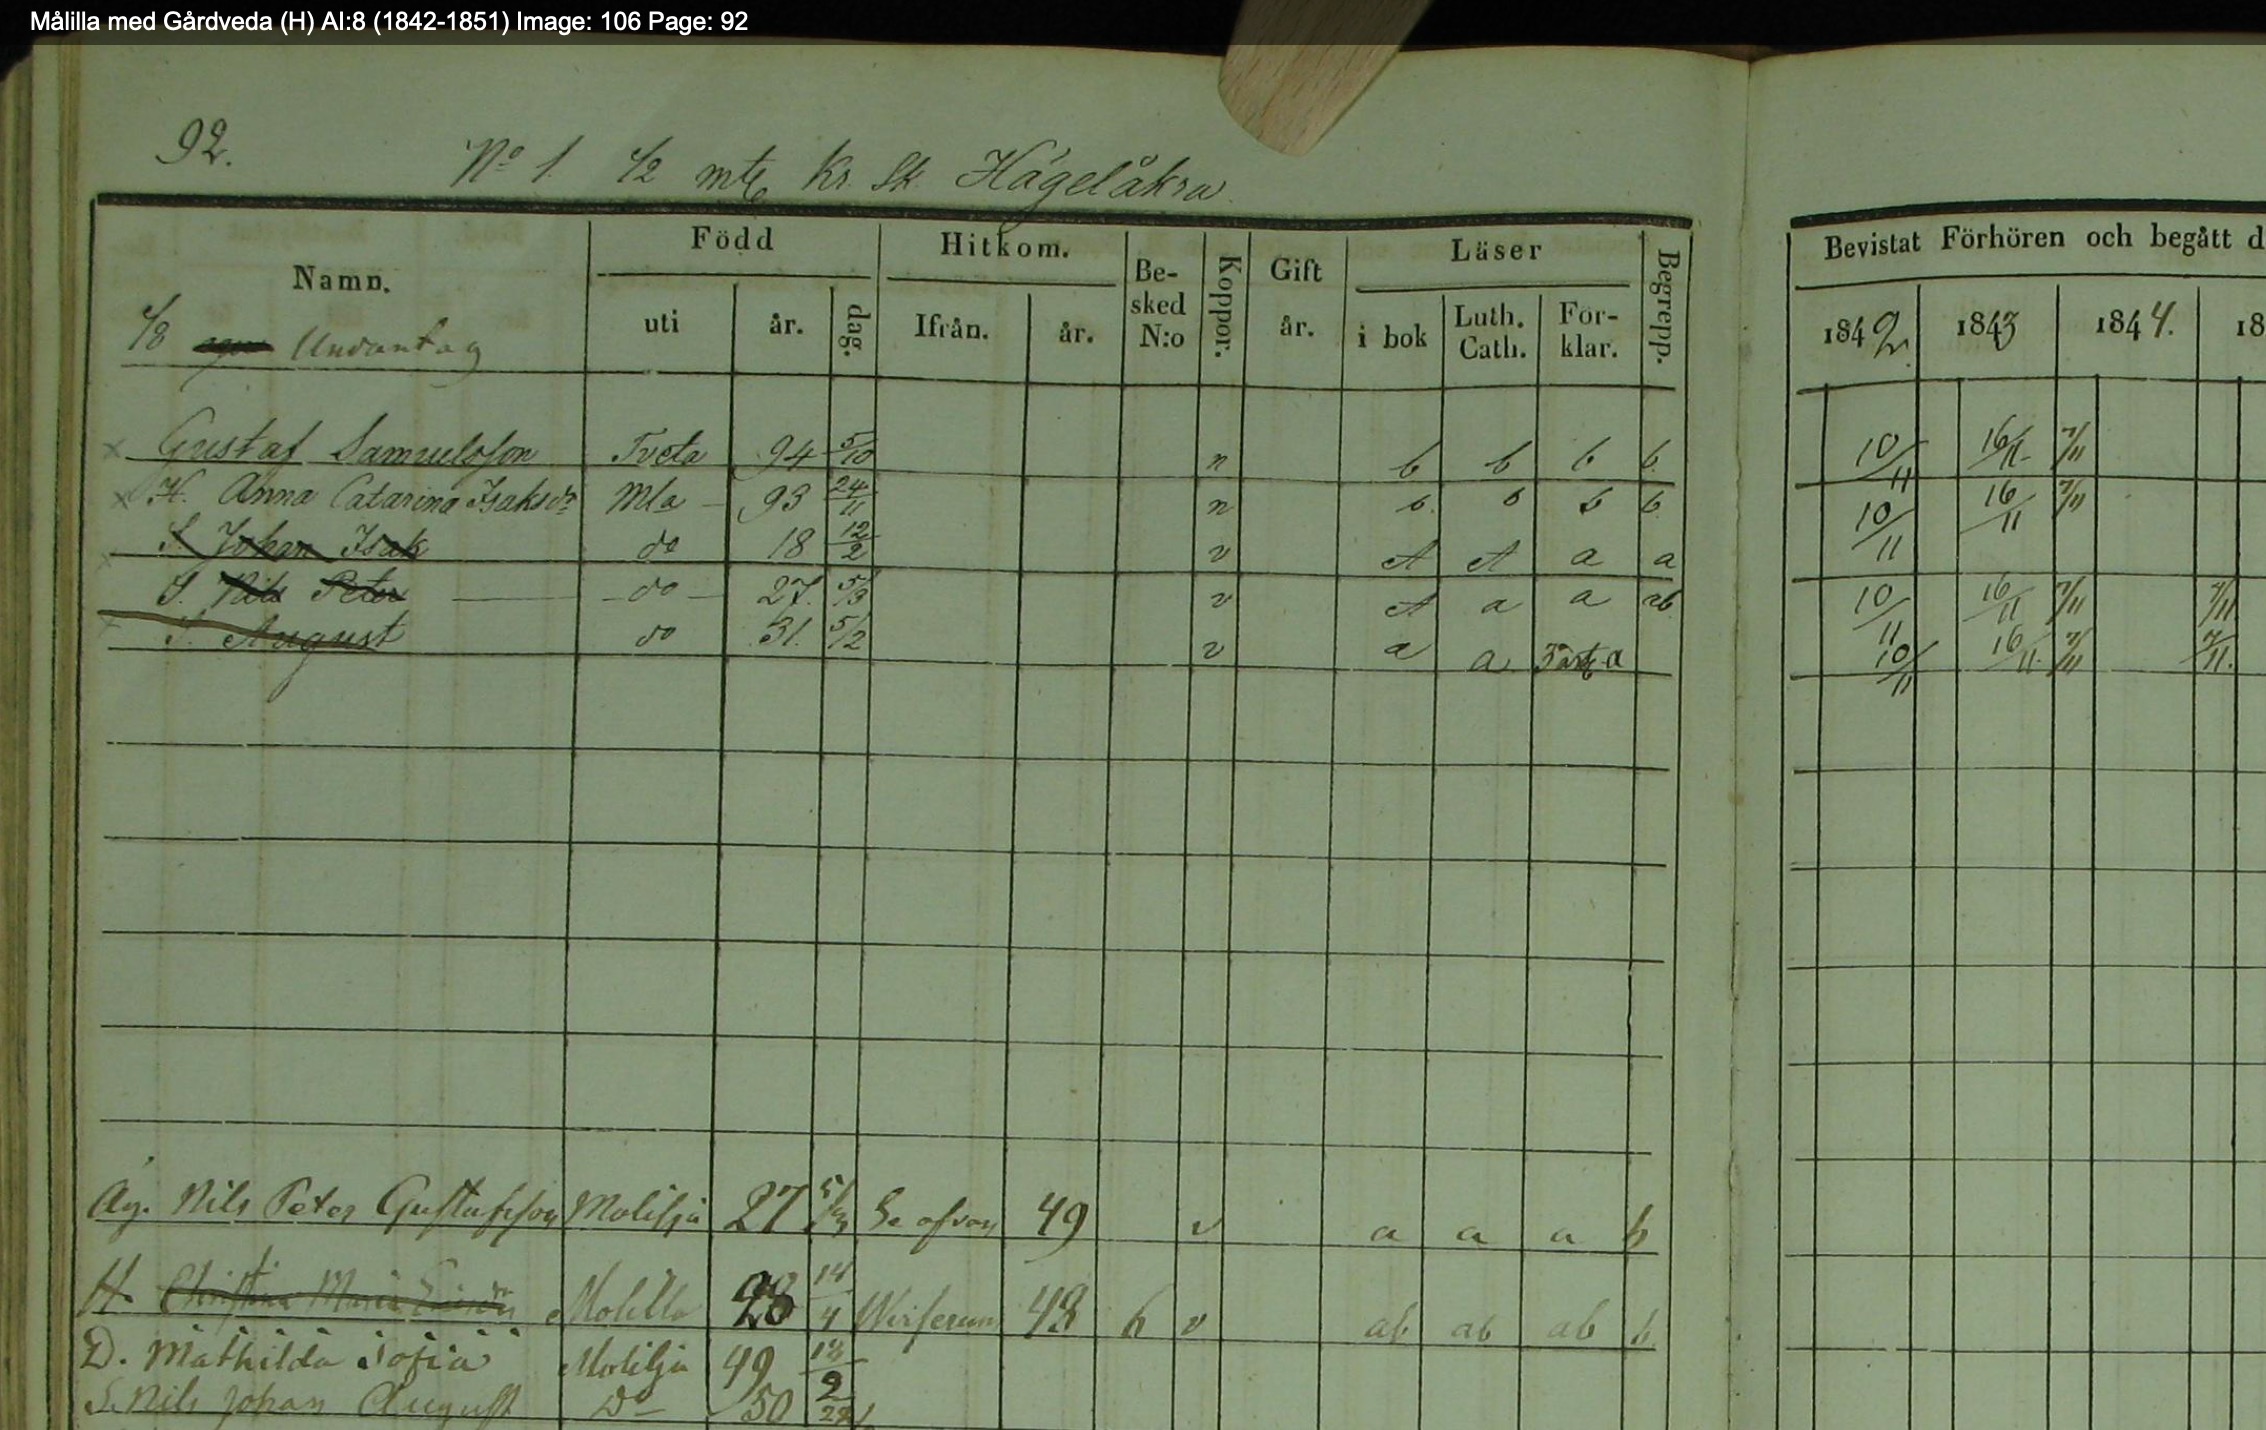 Målilla med Gårdveda (H) AI:8 (1842-1851) Image: 106 Page: 92
92.
No 1. 1/2 mtl Kr. Sk. Hägelåkra.
Namn. Född uti år. dag. Hitkom. Ifrån. år. Be-sked N:o Koppor. Gift år. Läser i bok Luth. Cath. För-klar. Begrepp. Bevistat Förhören och begått d
1842 1843 1844. 18
1/8 Undantag
Gustaf Samuelsson Tveta 94 5/10 n b b b b. 10/11 16/11 7/11
H. Anna Catarina Isaksdr Mla 93 24/11 n b. b b b 10/11 16/11 7/11
S. Johan Isak do 18 12/2 v A A a a
S. Nils Peter do 27. 5/3 v A a a ab. 10/11 16/11 7/11 4/11
S. August do 31. 5/2 v a a a 10/11 16/11 7/11 4/11.
Äg. Nils Peter Gustafsson Målilja 27 5/3 Se ofvan 49 v a a a b
H. Christina Maria Målilla 28 14/4 Wirserum 48 6 v ab ab ab b.
D. Mathilda Sofia Målilja 49 18/2
S. Nils Johan August Do 50